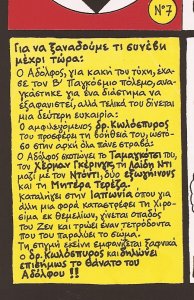 Nº7
Για να ξαναδούμε τι συνέβη
μέχρι τώρα:
Ο Αδόλφος, για κακή του τύχη, έχα-
σε τον Β' Παγκόσμιο πόλεμο, ανα-
γκάστηκε για ένα διάστημα να
εξαφανιστεί, αλλά τελικά του δίνεται
μια δεύτερη ευκαιρία:
Ο αμφιλεγόμενος δρ. Κωλόσπυρος
του προσφέρει τη βοήθειά του, ωστό-
σο στην αρχή όλα πάνε στραβά:
Ο Αδόλφος σκοτώνει το Ταμαγκότσι του,
τον Χέρμαν Γκέρινγκ, τη Λαίδη Ντι
μαζί με τον Ντόντι, δύο εξωγήινους
και τη Μητέρα Τερέζα.
Καταλήγει στην Ιαπωνία όπου για
άλλη μια φορά καταστρέφει τη Χιρο-
σίμα εκ θεμελίων, γίνεται οπαδός
του Ζεν και τρώει έναν τετρόδοντα
που του παραλύει το σώμα.
Τη στιγμή εκείνη εμφανίζεται ξαφνικά
ο δρ. Κωλόσπυρος και δηλώνει
επισήμως το θάνατο του
Αδόλφου!!